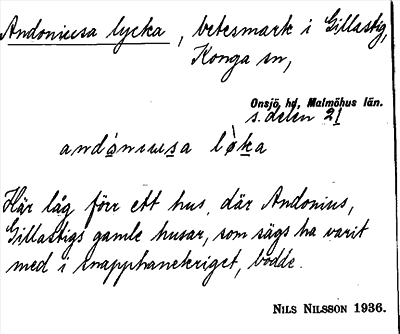 Andoniusa lycka, betesmark i Gillastig,
Konga sn,
Onsjö hd, Malmöhus län.
s. delen 21
andóniusa lỳka
Här låg förr ett hus, där Andonius,
Gillastigs gamle husar, som sägs ha varit
med i snapphanekriget, bodde.
NILS NILSSON 1936.